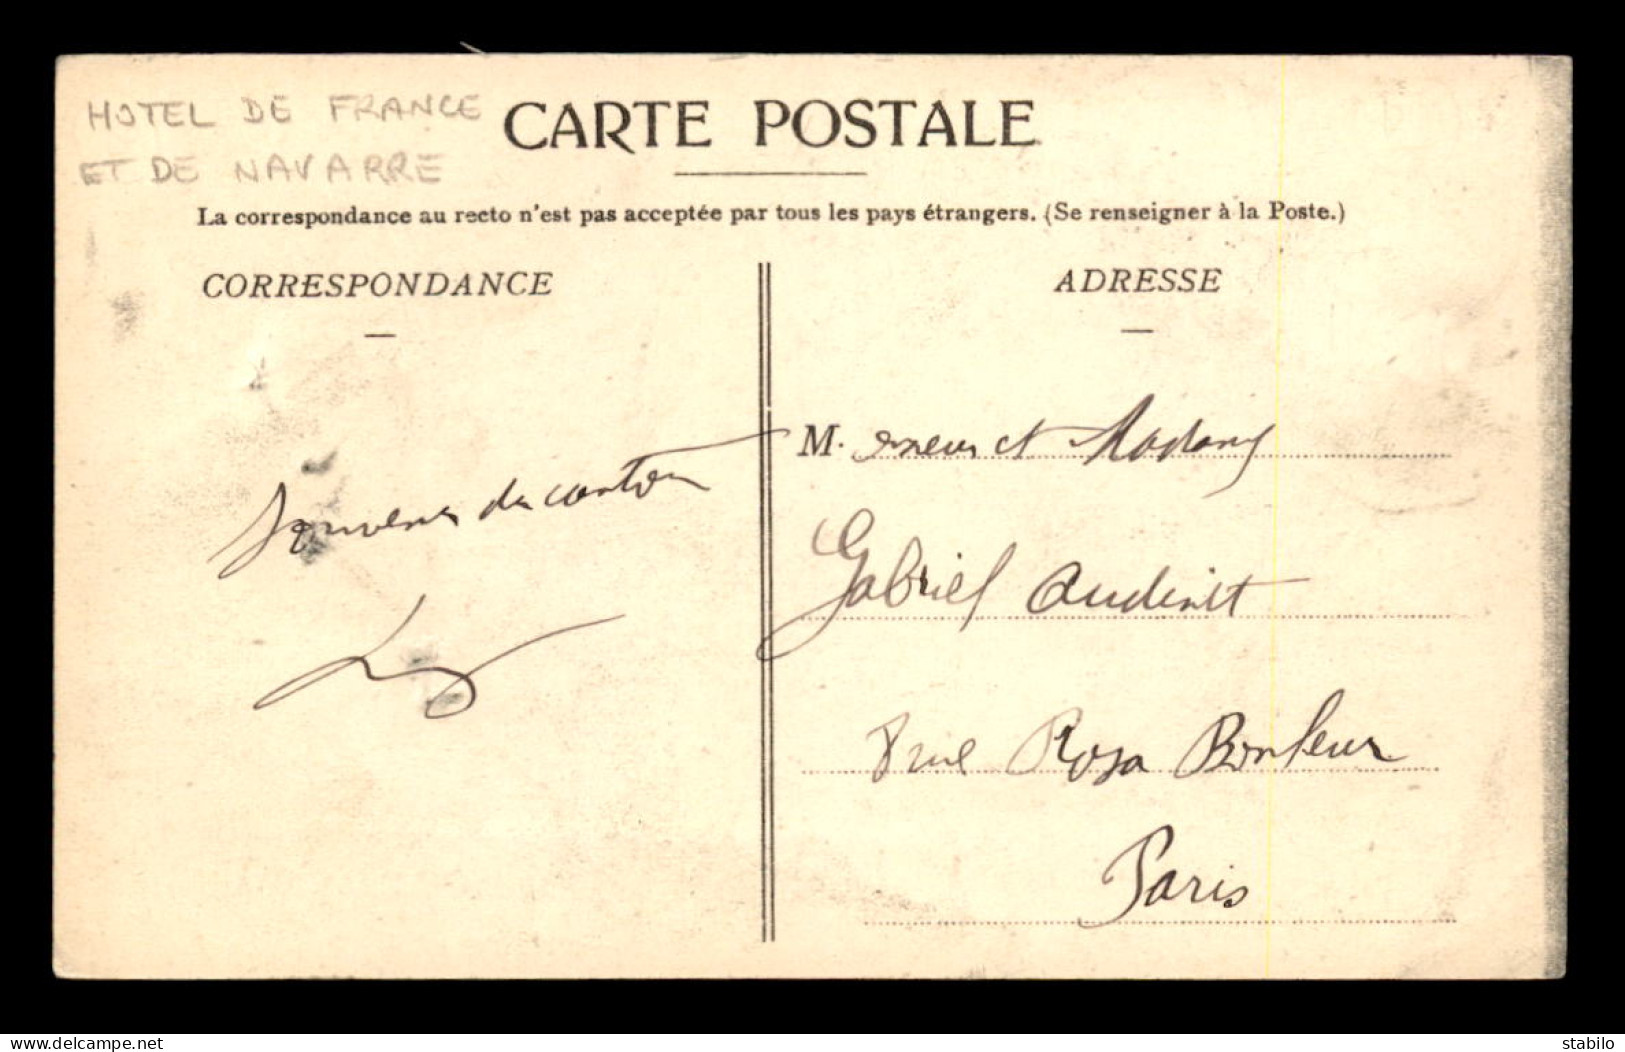 HOTEL DE FRANCE
ET DE NAVARRE
CARTE POSTALE
La correspondance au recto n'est pas acceptée par tous les pays étrangers. (Se renseigner à la Poste.)
CORRESPONDANCE
Souvenir du
ADRESSE
M. et Madame
Gabriel Audinet
rue Rosa Bonheur
Paris
www.delcampe.net
stabilo